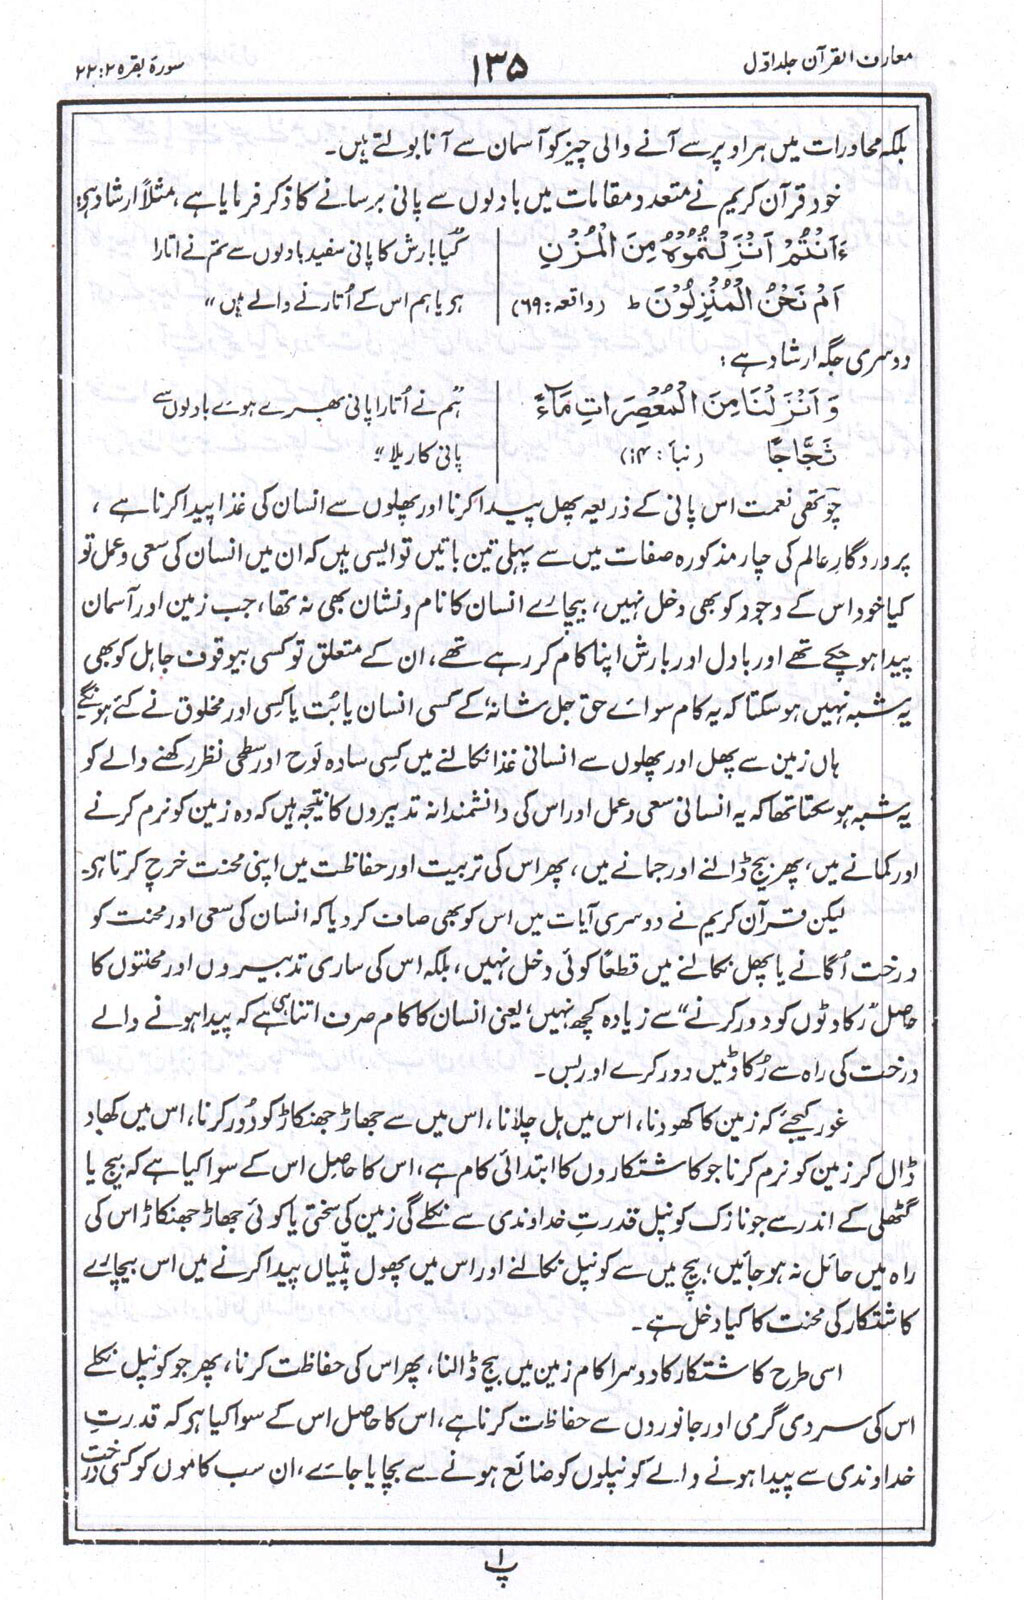 معارف القرآن جلد اوّل
۱۳۵
سورۃ بقرہ ۲:۲۲
بلکہ محاورات میں ہر اوپر سے آنے والی چیز کو آسمان سے آنا بولتے ہیں۔
خود قرآن کریم نے متعدد مقامات میں بادلوں سے پانی برسانے کا ذکر فرمایا ہے، مثلاً ارشاد ہی:
ءَاَنْتُمْ اَنْزَلْتُمُوْهُ مِنَ الْمُزْنِ
اَمْ نَحْنُ الْمُنْزِلُوْنَ ط (واقعہ: ۶۹)
"کیا بارش کا پانی سفید بادلوں سے تم نے اتارا
ہو یا ہم اس کے اُتارنے والے ہیں"
دوسری جگہ ارشاد ہے:
وَاَنْزَلْنَا مِنَ الْمُعْصِرَاتِ مَاءً
ثَجَّاجًا (نبأ: ۱۴)
"ہم نے اُتارا پانی بھرے ہوے بادلوں سے
پانی کا ریلا"
چوتھی نعمت اس پانی کے ذریعہ پھل پیدا کرنا اور پھلوں سے انسان کی غذا پیدا کرنا ہے،
پروردگارِ عالم کی چار مذکورہ صفات میں سے پہلی تین باتیں تو ایسی ہیں کہ ان میں انسان کی سعی و عمل تو
کیا خود اس کے وجود کو بھی دخل نہیں، بیچارے انسان کا نام و نشان بھی نہ تھا، جب زمین اور آسمان
پیدا ہو چکے تھے اور بادل اور بارش اپنا کام کر رہے تھے، ان کے متعلق تو کسی بیوقوف جاہل کو بھی
یہ شبہ نہیں ہو سکتا کہ یہ کام سوائے حق جل شانہ، کے کسی انسان یا بُت یا کسی اور مخلوق نے کئے ہونگے
ہاں زمین سے پھل اور پھلوں سے انسانی غذا نکالنے میں کسی سادہ لَوح اور سطحی نظر رکھنے والے کو
یہ شبہ ہو سکتا تھا کہ یہ انسانی سعی و عمل اور اس کی دانشمندانہ تدبیروں کا نتیجہ ہیں کہ وہ زمین کو نرم کرنے
اور کمانے میں، پھر بیج ڈالنے اور جمانے میں، پھر اس کی تربیت اور حفاظت میں اپنی محنت خرچ کرتا ہی۔
لیکن قرآن کریم نے دوسری آیات میں اس کو بھی صاف کر دیا کہ انسان کی سعی اور محنت کو
درخت اُگانے یا پھل نکالنے میں قطعًا کوئی دخل نہیں، بلکہ اس کی ساری تدبیروں اور محنتوں کا
حاصل "رکاوٹوں کو دور کرنے" سے زیادہ کچھ نہیں، یعنی انسان کا کام صرف اتنا ہی ہے کہ پیدا ہونے والے
درخت کی راہ سے رُکاوٹیں دور کرے اور بس۔
غور کیجئے کہ زمین کا کھودنا، اس میں ہل چلانا، اس میں سے جھاڑ جھنکاڑ کو دُور کرنا، اس میں کھاد
ڈال کر زمین کو نرم کرنا جو کاشتکاروں کا ابتدائی کام ہے، اس کا حاصل اس کے سوا کیا ہے کہ بیج یا
گٹھلی کے اندر سے جو نازک کونپل قدرتِ خداوندی سے نکلے گی زمین کی سختی یا کوئی جھاڑ جھنکاڑ اس کی
راہ میں حائل نہ ہو جائیں، بیج میں سے کونپل نکالنے اور اس میں پھول پتّیاں پیدا کرنے میں اس بیچارے
کاشتکار کی محنت کا کیا دخل ہے۔
اسی طرح کاشتکار کا دوسرا کام زمین میں بیج ڈالنا، پھر اس کی حفاظت کرنا، پھر جو کونپل نکلے
اس کی سردی گرمی اور جانوروں سے حفاظت کرنا ہے، اس کا حاصل اس کے سوا کیا ہو کہ قدرتِ
خداوندی سے پیدا ہونے والے کونپلوں کو ضائع ہونے سے بچایا جائے، ان سب کاموں کو کسی درخت
پ ۱